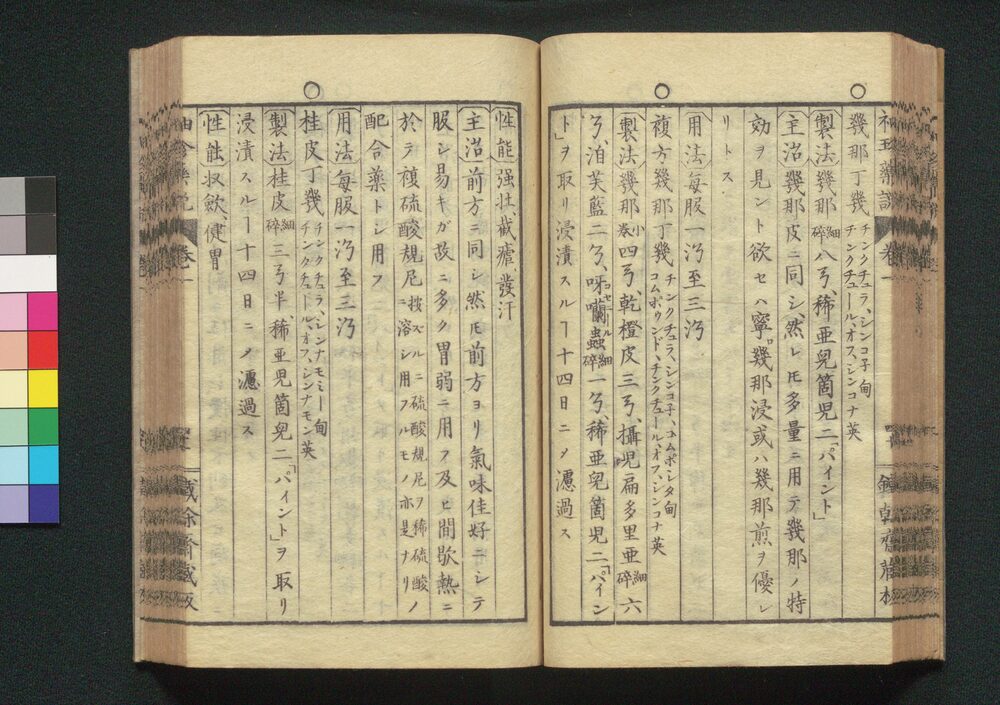 ○
幾那丁幾 チンクチュラ、シンコ子甸 チンクチュール、オフ、シンコナ英
製法 幾那細碎八㕝、稀亜兒箇兒二「パイント」
主治 幾那皮ニ同シ、然レ𪜈多量ニ用テ幾那ノ特
効ヲ見ント欲セハ寧幾那浸或ハ幾那煎ヲ優レ
リトス
用法 毎服一
至三
○
複方幾那丁幾 チンクチュラ、シンコ子、コムポシタ甸 コムポウンド、チンクチュール、オフ、シンコナ英
製法 幾那小卷四㕝、乾橙皮三㕝、攝兒扁多里亜細碎六
㕝、泊芙藍二㕝、呀囒蟲コセニール細碎一㕝、稀亜兒箇兒二「パイン
ト」ヲ取リ浸漬スルヿ十四日ニ〆濾過ス
性能 强壮、截瘧、發汗
主治 前方ニ同シ然𪜈前方ヨリ氣味佳好ニシテ
服シ易キガ故ニ多ク胃弱ニ用フ及ヒ間歇熱ニ
於テ複硫酸規尼 按スルニ硫酸規尼ヲ稀硫酸ニ溶シ用フルモノ亦是ナリ ノ
配合藥トシ用フ
用法 毎服一
至三
○
桂皮丁幾 チンクチュラ、シンナモミー甸 チンクチュール、オフ、シンナモン英
製法 桂皮細碎三㕝半、稀亜兒箇兒二「パイント」ヲ取リ
浸漬スルヿ十四日ニ〆濾過ス
性能 収歛、健胃